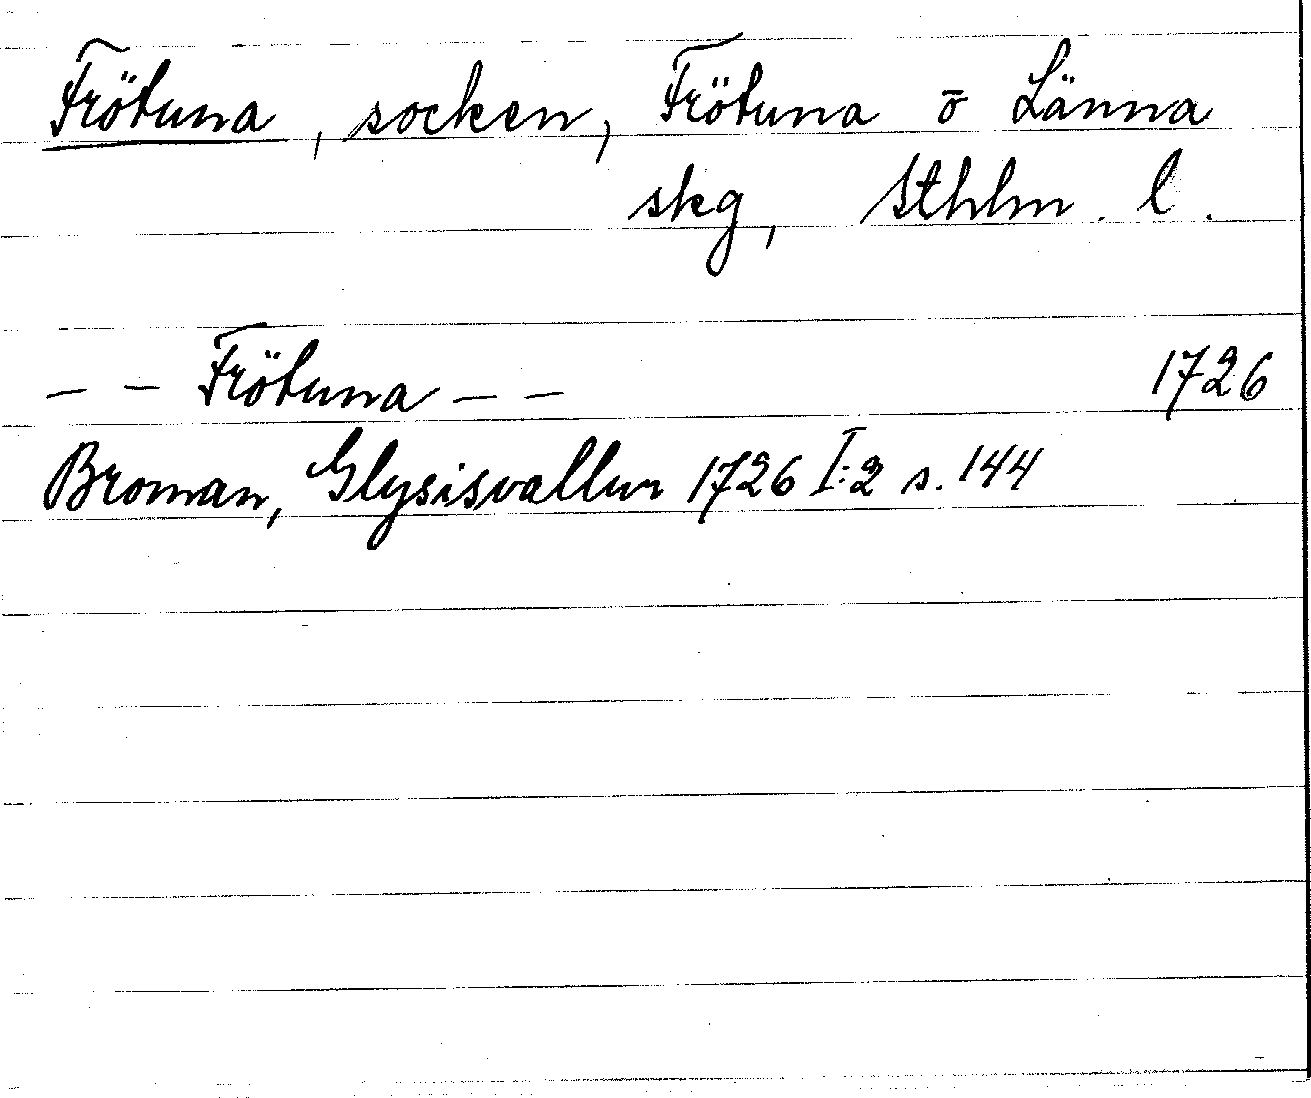 Frötuna, socken, Frötuna o Länna
skg, Sthlm. l.
– – Frötuna – – 1726
Broman, Glysisvallur 1726 I:2 s. 144